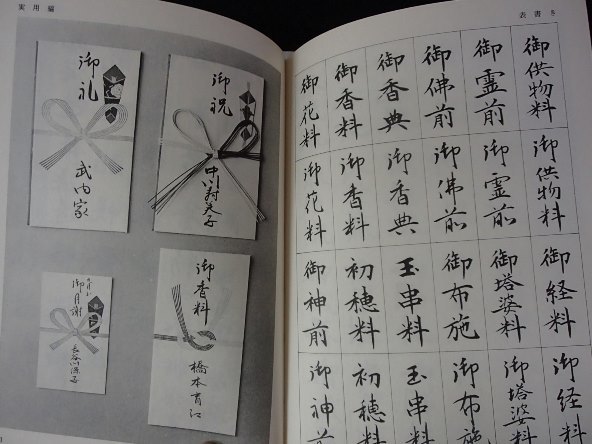 実用編
御礼
武内家
御祝
御月謝
御香料
橋本有江
表書き
御供物料
御霊前
御佛前
御香典
御香料
御花料
御供物料
御霊前
御佛前
御香典
御香料
御花料
御経料
御塔婆料
御布施
玉串料
初穂料
御神前
御経料
御塔婆料
御布施
玉串料
初穂料
御神前